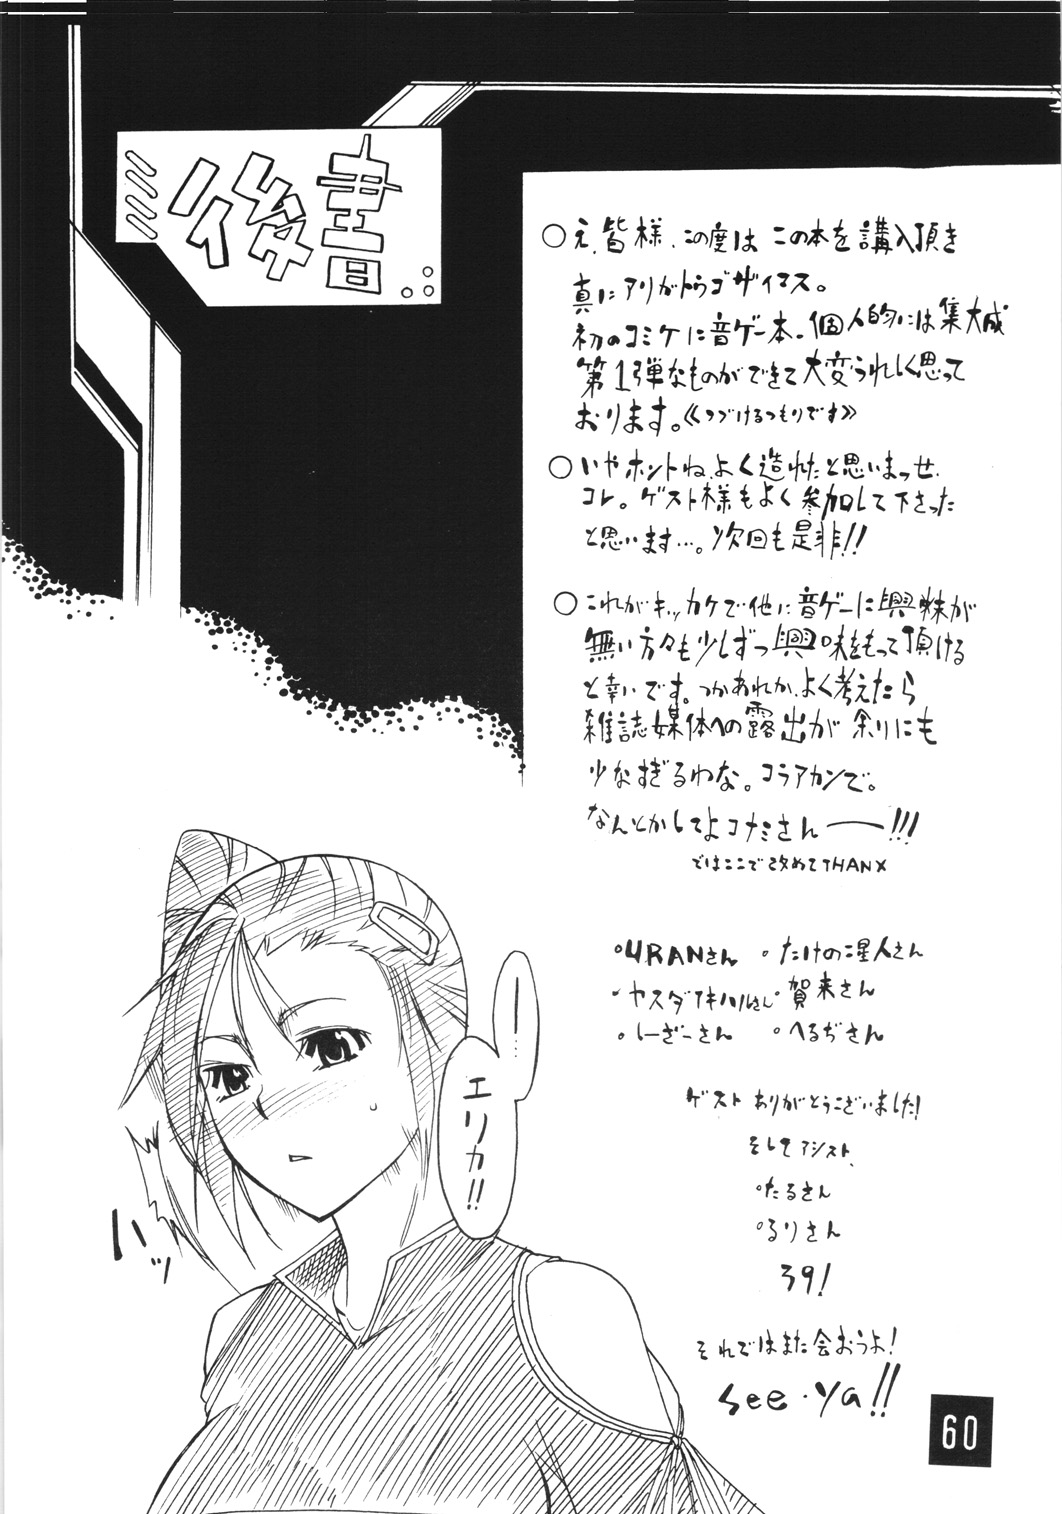 後書
○え、皆様、この度は この本を講入頂き
真にアリがトウゴザイマス。
初のコミケに音ゲー本、個人的には集大成
第1弾なものができて大変うれしく思って
おります。≪つづけるつもりです≫
○いやホントね、よく造れたと思いまっせ、
コレ。ゲスト様もよく参加して下さった
と思います…。次回も是非!!
○これがキッカケで他に音ゲーに興味が
無い方々も少しずつ興味をもって頂ける
と幸いです。つかあれか、よく考えたら
雑誌媒体への露出が余りにも
少なすぎるわな。コラアカンで。
なんとかしてよコナミさん――!!!
ではここで改めてTHANX
・URANさん ・たけの星人さん
・ヤスダアキハルさん・賀来さん
・しーざーさん ・へるぢさん
ゲスト ありがとうございました!
そしてアシスト、
・たるさん
・るりさん
39!
それではまた会おうよ!
see・ya!!
ー…
エリカ!!
ハッ
60